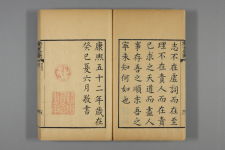 志不在虛詞而在至
理不在責人而在責
己求之天道而盡人
事存吾之順求吾之
寧未知何如也
康熙五十二年歲在
癸巳夏六月敬書